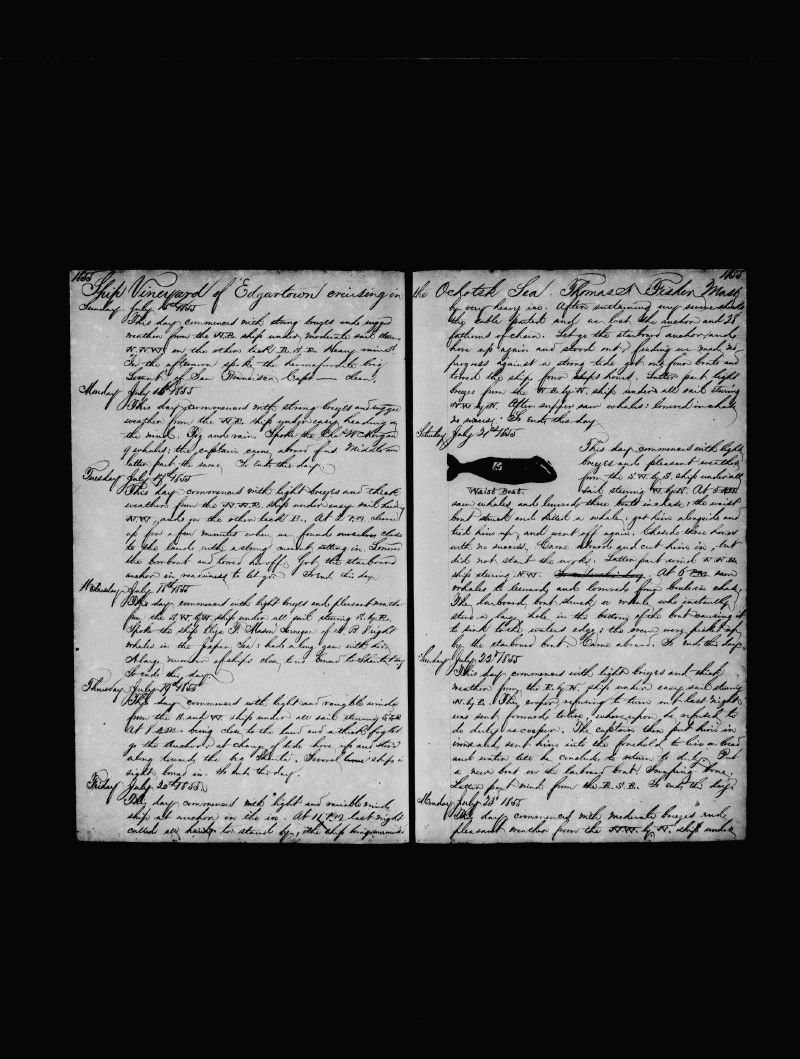 1855
Ship Vineyard of Edgartown cruising in
Sunday July 15th 1855
This day commenced with strong breezes and rugged
weather from the N.E. ship under moderate sail
N.N.W. on the other tack E.S.E. Heavy rains
In the afternoon spoke the hermaphrodite brig
of San Francisco, Capt — clean.
Monday July 16th 1855
This day commenced with strong breezes and rugged
weather from the N.E. ship under easy sail heading
the wind. Fog and rain. Spoke the Chs W Morgan
9 whales; the captain came aboard of us. Middle and
latter part the same. So ends this day
Tuesday July 17th 1855
This day commenced with light breezes and thick
weather from the N.N.E. ship under easy sail heading
N.W. and on the other tack E. At 2 P.M. cleared
up for a few minutes when we found ourselves close
to the land with a strong current setting in. Lowered
the bow boat and towed her off. Got the starboard
anchor in readiness to let go. So ends this day
Wednesday July 18th 1855
This day commenced with light breezes and pleasant weather
from the S.W. by W. ship under all sail steering
Spoke the ship Eliza F. Mason of N B Eight
whales in the Japan Sea; had a gam with him.
A large number of ships close to us. bound to Shantar Bay
So ends this day
Thursday July 19th 1855
This day commenced with light and variable winds
from the and W. ship under all sail steering
At 8 A.M. being close to the land and a thick fog let
go the anchor; at change of tide hove up and stood
along towards the big Shantar. Several ships in
sight bound in. So ends this day.
Friday July 20th 1855
This day commenced with light and variable winds
ship at anchor in the ice. At 11 P.M. last night
called all hands to stand by, the ship being surrounded
1855
the Ochotsk Sea. Thomas N Fisher Mast
by very heavy ice. After sustaining very severe
the cable parted and we lost the anchor and 25
fathoms of chain. Let go the starboard anchor; and
hove up again and stood out; finding we made no
progress against a strong tide got our four boats and
towed the ship four ships hours. Latter part light
breezes from the N.E. by N. ship under all sail steering
N.W. by N. After supper saw whales: lowered in chase
no success. So ends this day
Saturday July 21st 1855
This day commenced with light
breezes and pleasant weather
from the S.W. by S. ship under all
sail steering N. by N. At 5 A.M.
Waist Boat.
saw whales and lowered three boats in chase; the waist
boat struck and killed a whale; got him alongside and
tied him up; and went off again. Chased three hours
with no success. Came aboard and cut him in, but
did not start the works. Latter part wind N.N.E.
ship steering N.W. At 6 P.M. saw
whales to leeward and lowered four boats in chase.
The larboard boat struck a whale who instantly
stove a large hole in the bottom of the boat causing it
to sink to the waters edge; the crew were picked up
by the starboard boat. Came aboard. So ends this day
Sunday July 22d 1855
This day commenced with light breezes and thick
weather from the E. by N. ship under easy sail steering
N. by E. The cooper refusing to turn out last night
was sent forwards to live, whereupon he refused to
do duty as cooper. The captain then put him in
irons and sent him into the forehold to live on bread
and water till he concludes to return to duty. Put
a new boat on the larboard boat. Scraping bone.
Latter part wind from the E.S.E. So ends this day
Monday July 23d 1855
This day commenced with moderate breezes and
pleasant weather from the N.W. by N. ship under